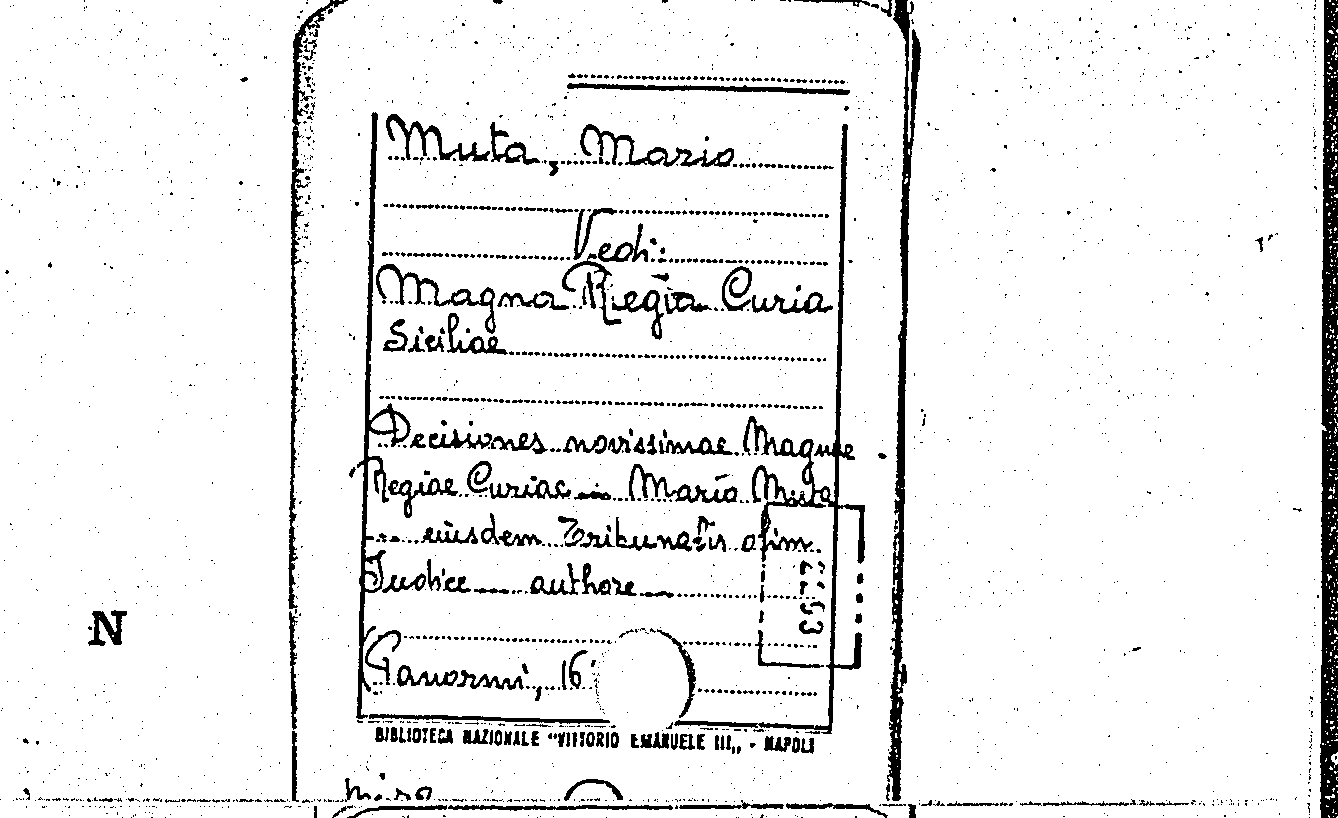 Muta, Mario
Vedi:
Magna Regia Curia
Siciliae
Decisiones novissimae Magnae
Regiae Curiae ... Mario Muta
... eiusdem Tribunalis olim.
Iudice ... authore ...
Panormi, 16
N
BIBLIOTECA NAZIONALE "VITTORIO EMANUELE III„ - NAPOLI